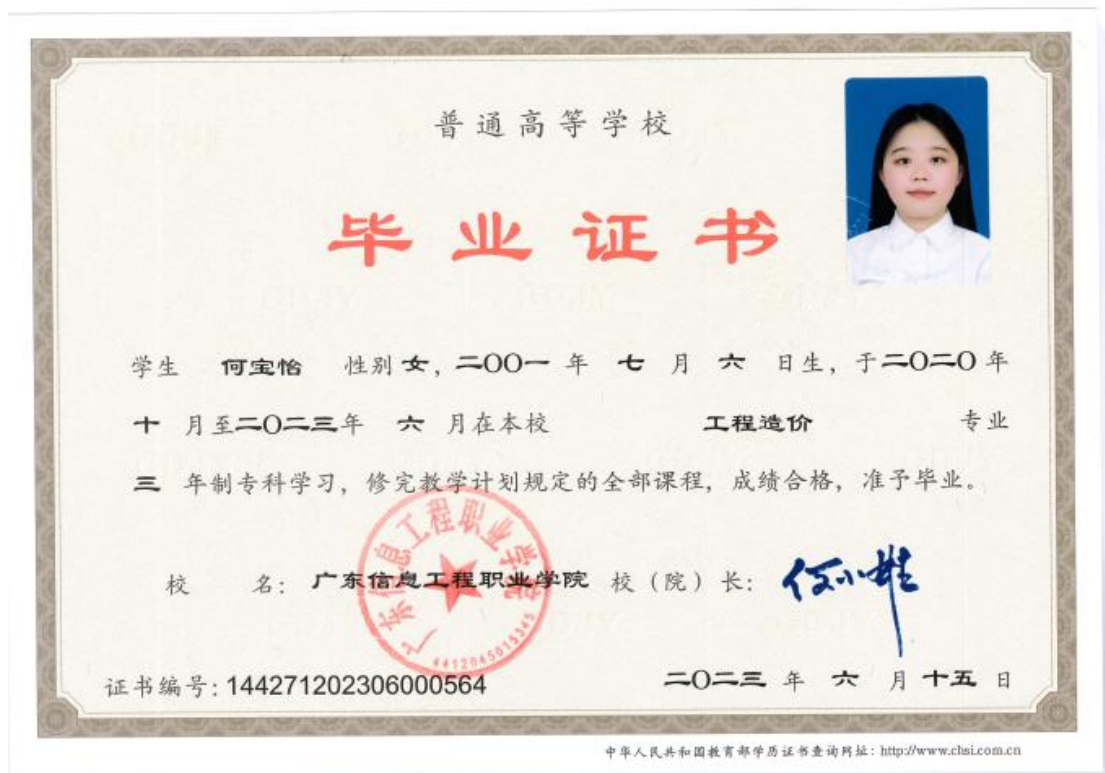 普通高等学校
毕业证书
学生 何宝怡 性别 女，二〇〇一 年 七 月 六 日生，于二〇二〇年
十 月至二〇二三年 六 月在本校 工程造价 专业
三 年制专科学习，修完教学计划规定的全部课程，成绩合格，准予毕业。
校 名：广东信息工程职业学院 校（院）长：何小雄
广东信息工程职业学院
4412045015345
证书编号：144271202306000564 二〇二三 年 六 月 十五 日
中华人民共和国教育部学历证书查询网址：http://www.chsi.com.cn